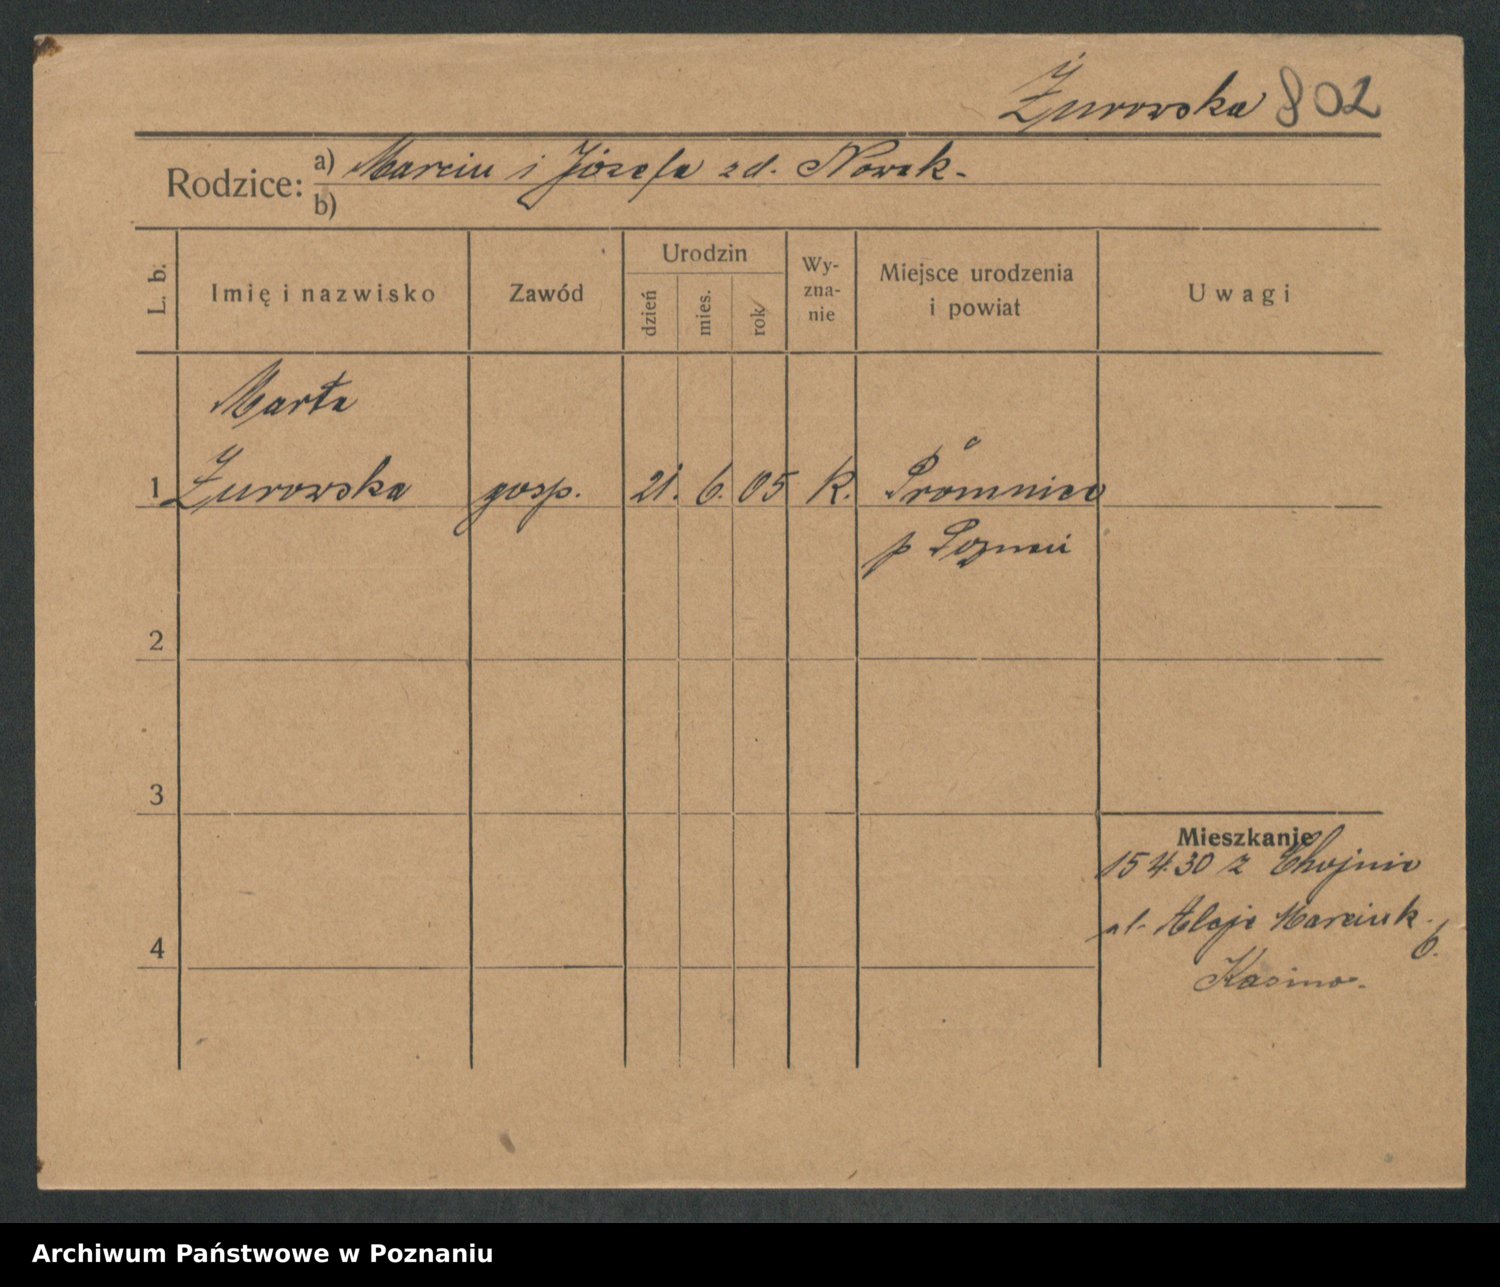 Żurowska 802
Rodzice: a) Marcin i Józefa zd. Nowak.
b)
L. b.
Imię i nazwisko
Zawód
Urodzin
dzień
mies.
rok
Wy-
zna-
nie
Miejsce urodzenia
i powiat
Uwagi
Marta
1 Żurowska gosp. 21. 6. 05 K. Promnice
p Poznań
2
3
Mieszkanie
15 4 30 z Chojnic
ul. Aleje Marcink. 6.
4
Kasino.
Archiwum Państwowe w Poznaniu